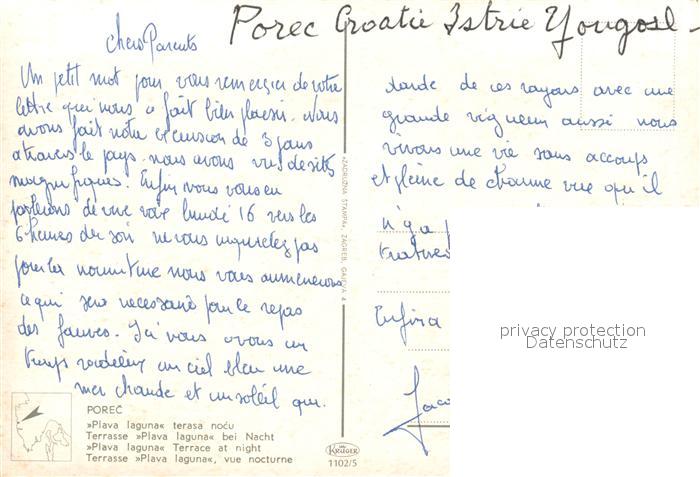 Porec Croatie Istrie Yougosl-
Chers Parents
Un petit mot pour vous remercier de votre
lettre qui nous a fait bien plaisir. Nous
avons fait notre excursion de 3 jours
atravers le pays. nous avons vu de sites
magnifiques. Enfin nous vous en
parlerons de vive voix lundi 16 vers les
6 heures du soir ne vous inquietez pas
pour la nourriture nous vous ammenerons
ce qui sera necessaire pour le repas
des fauves. Ici nous avons un
temps un ciel bleu une
mer chaude et un soleil qui
darde de ces rayons avec une
grande vigueur aussi nous
vivons une vie sans accoups
et pleine de charme vue qu'il
n'y a
Enfin
privacy protection
Datenschutz
»ZADRUŽNA ŠTAMPA«, ZAGREB, GAJEVA 4
POREČ
»Plava laguna« terasa noću
Terrasse »Plava laguna« bei Nacht
»Plava laguna« Terrace at night
Terrasse »Plava laguna«, vue nocturne
KRÜGER
1102/5